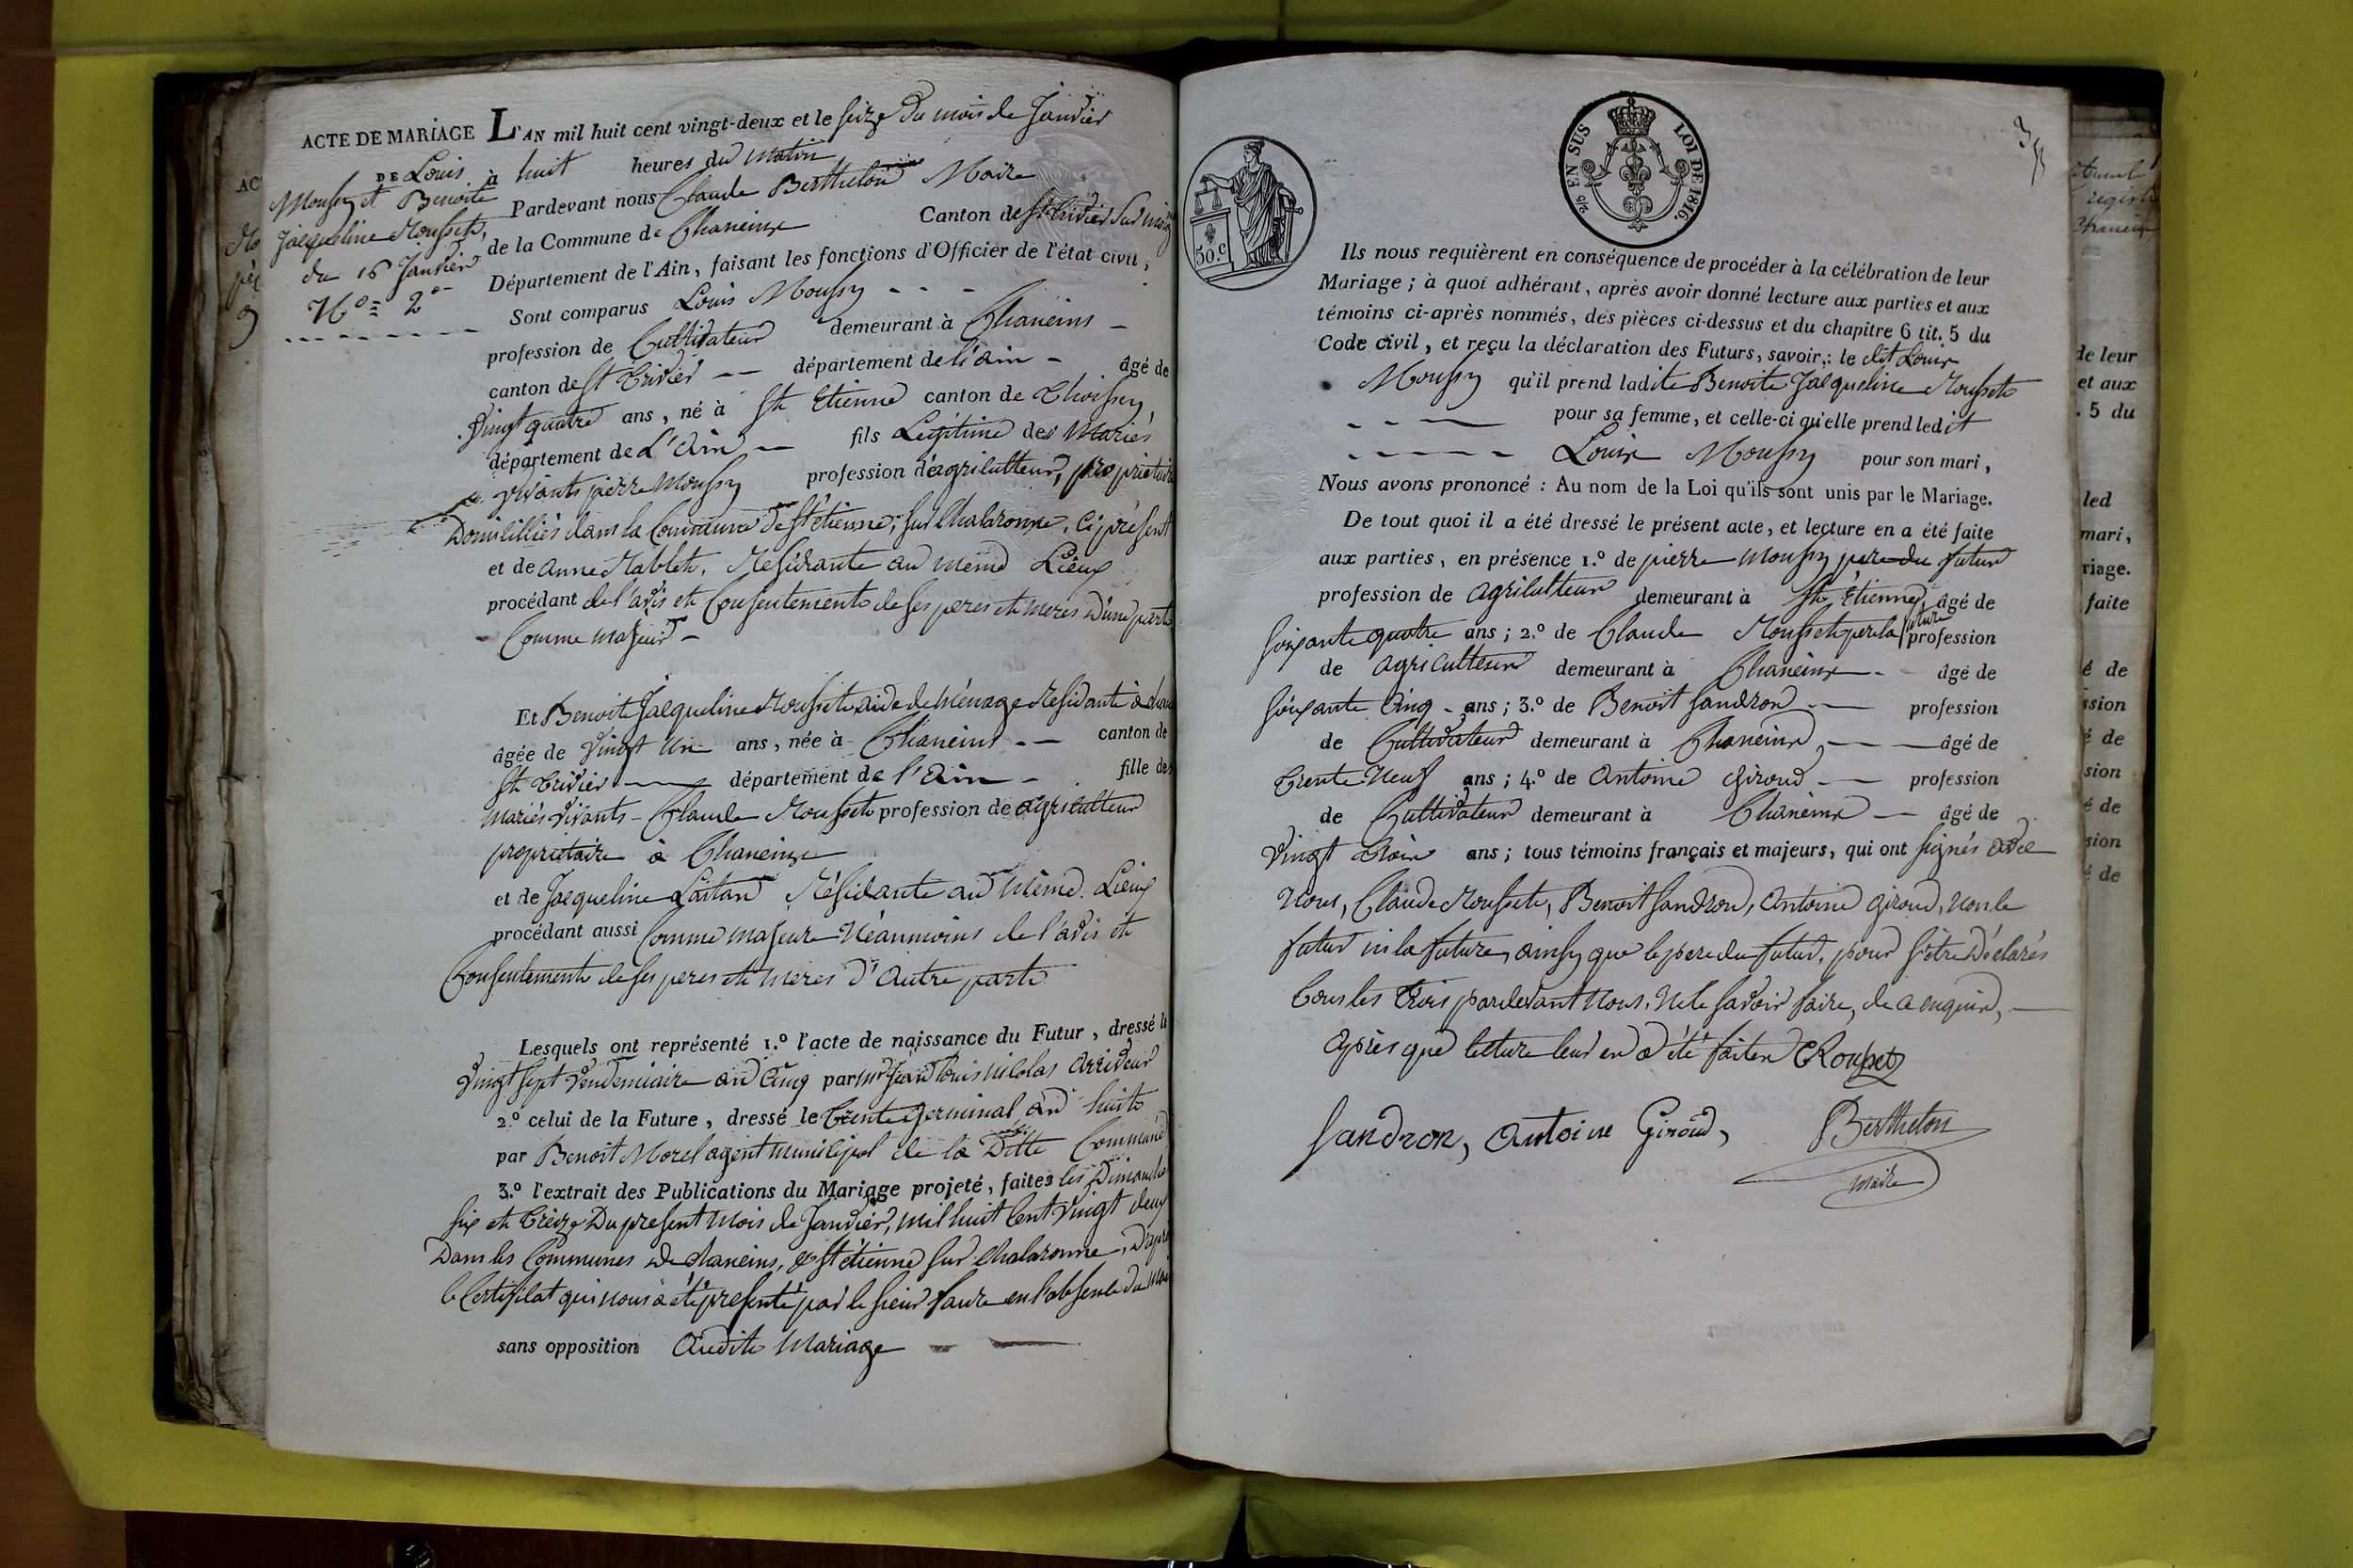 ACTE DE MARIAGE L'AN mil huit cent vingt-deux et le seize du mois de Janvier
DE Louis à huit heures du matin
Moussy et Benoite
Jacqueline Rousset,
du 16 Janvier
N° = 2°
Pardevant nous Claude Bertheton Maire
de la Commune de Chaneins Canton de St trivier sur
Département de l'Ain, faisant les fonctions d'Officier de l'état civil,
Sont comparus Louis Moussy - - -
profession de Cultivateur demeurant à Chaneins -
canton de St Trivier -- département de l'ain - âgé de
vingt quatre ans, né à St Etienne canton de Thoissey
département de L'Ain - fils Légitime des Mariés
vivants pierre Moussy profession d'agriculteur, propriétaire
Domicilliés dans la Commune de St étienne, sur Chalaronne, Ci présent
et de anne Mablet, Résidante au même Lieux
procédant de l'avis et Consentement de ses peres et meres d'une part
- Comme majeur -
Et Benoite Jacqueline Rousset aide de ménage Residante à
âgée de vingt un ans, née à Chaneins -- canton de
St Trivier -- département de l'Ain - fille des
mariés vivants - Claude Rousset profession de agriculteur
propriétaire à Chaneins
et de Jacqueline Résidante au même Lieux
procédant aussi Comme majeure Néanmoins de l'avis et
Consentement de ses peres et meres d'autre part
Lesquels ont représenté 1.° l'acte de naissance du Futur, dressé le
vingt sept vendemiaire an Cinq par mr Jean Louis nicolas
2.° celui de la Future, dressé le trente germinal an huit
par Benoit Morel agent municipal de la Ditte Commune
3.° l'extrait des Publications du Mariage projeté, faites les Dimanche
six et treize Du présent mois de Janvier, mil huit Cent Vingt deux
Dans les Communes de Chaneins, & St étienne sur Chalaronne, D'après
le Certificat qui nous à été présenté par le sieur faure en l'absence du
sans opposition Audit Mariage
EN SUS LOI DE 1816.
50.c
Ils nous requièrent en conséquence de procéder à la célébration de leur
Mariage; à quoi adhérant, après avoir donné lecture aux parties et aux
témoins ci-après nommés, des pièces ci-dessus et du chapitre 6 tit. 5 du
Code civil, et reçu la déclaration des Futurs, savoir: le dit Louis
Moussy qu'il prend ladite Benoite Jacqueline Rousset
pour sa femme, et celle-ci qu'elle prend ledit
Louis Moussy pour son mari,
Nous avons prononcé: Au nom de la Loi qu'ils sont unis par le Mariage.
De tout quoi il a été dressé le présent acte, et lecture en a été faite
aux parties, en présence 1.° de pierre Moussy pere du futur
profession de agriculteur demeurant à St Étienne, âgé de
soixante quatre ans; 2.° de Claude Rousset pere la future profession
de agriculteur demeurant à Chaneins - âgé de
soixante Cinq - ans; 3.° de Benoit Sandron -- profession
de Cultivateur demeurant à Chaneins -- âgé de
trente Neuf ans; 4.° de Antoine Giroud -- profession
de Cultivateur demeurant à Chaneins -- âgé de
vingt trois ans; tous témoins français et majeurs, qui ont signés avec
Nous, Claude Rousset, Benoit Sandron, Antoine Giroud, non le
futur ni la future, ainsy que le pere du futur, pour s'être Déclarés
tous les trois pardevant Nous, Ne le savoir faire, de ce enquis, -
Après que lecture leur en a été faite CRousset
Sandron, Antoine Giroud, Bertheton
maire
de leur
et aux
. 5 du
led
mari,
riage.
faite
é de
ssion
é de
sion
é de
sion
é de